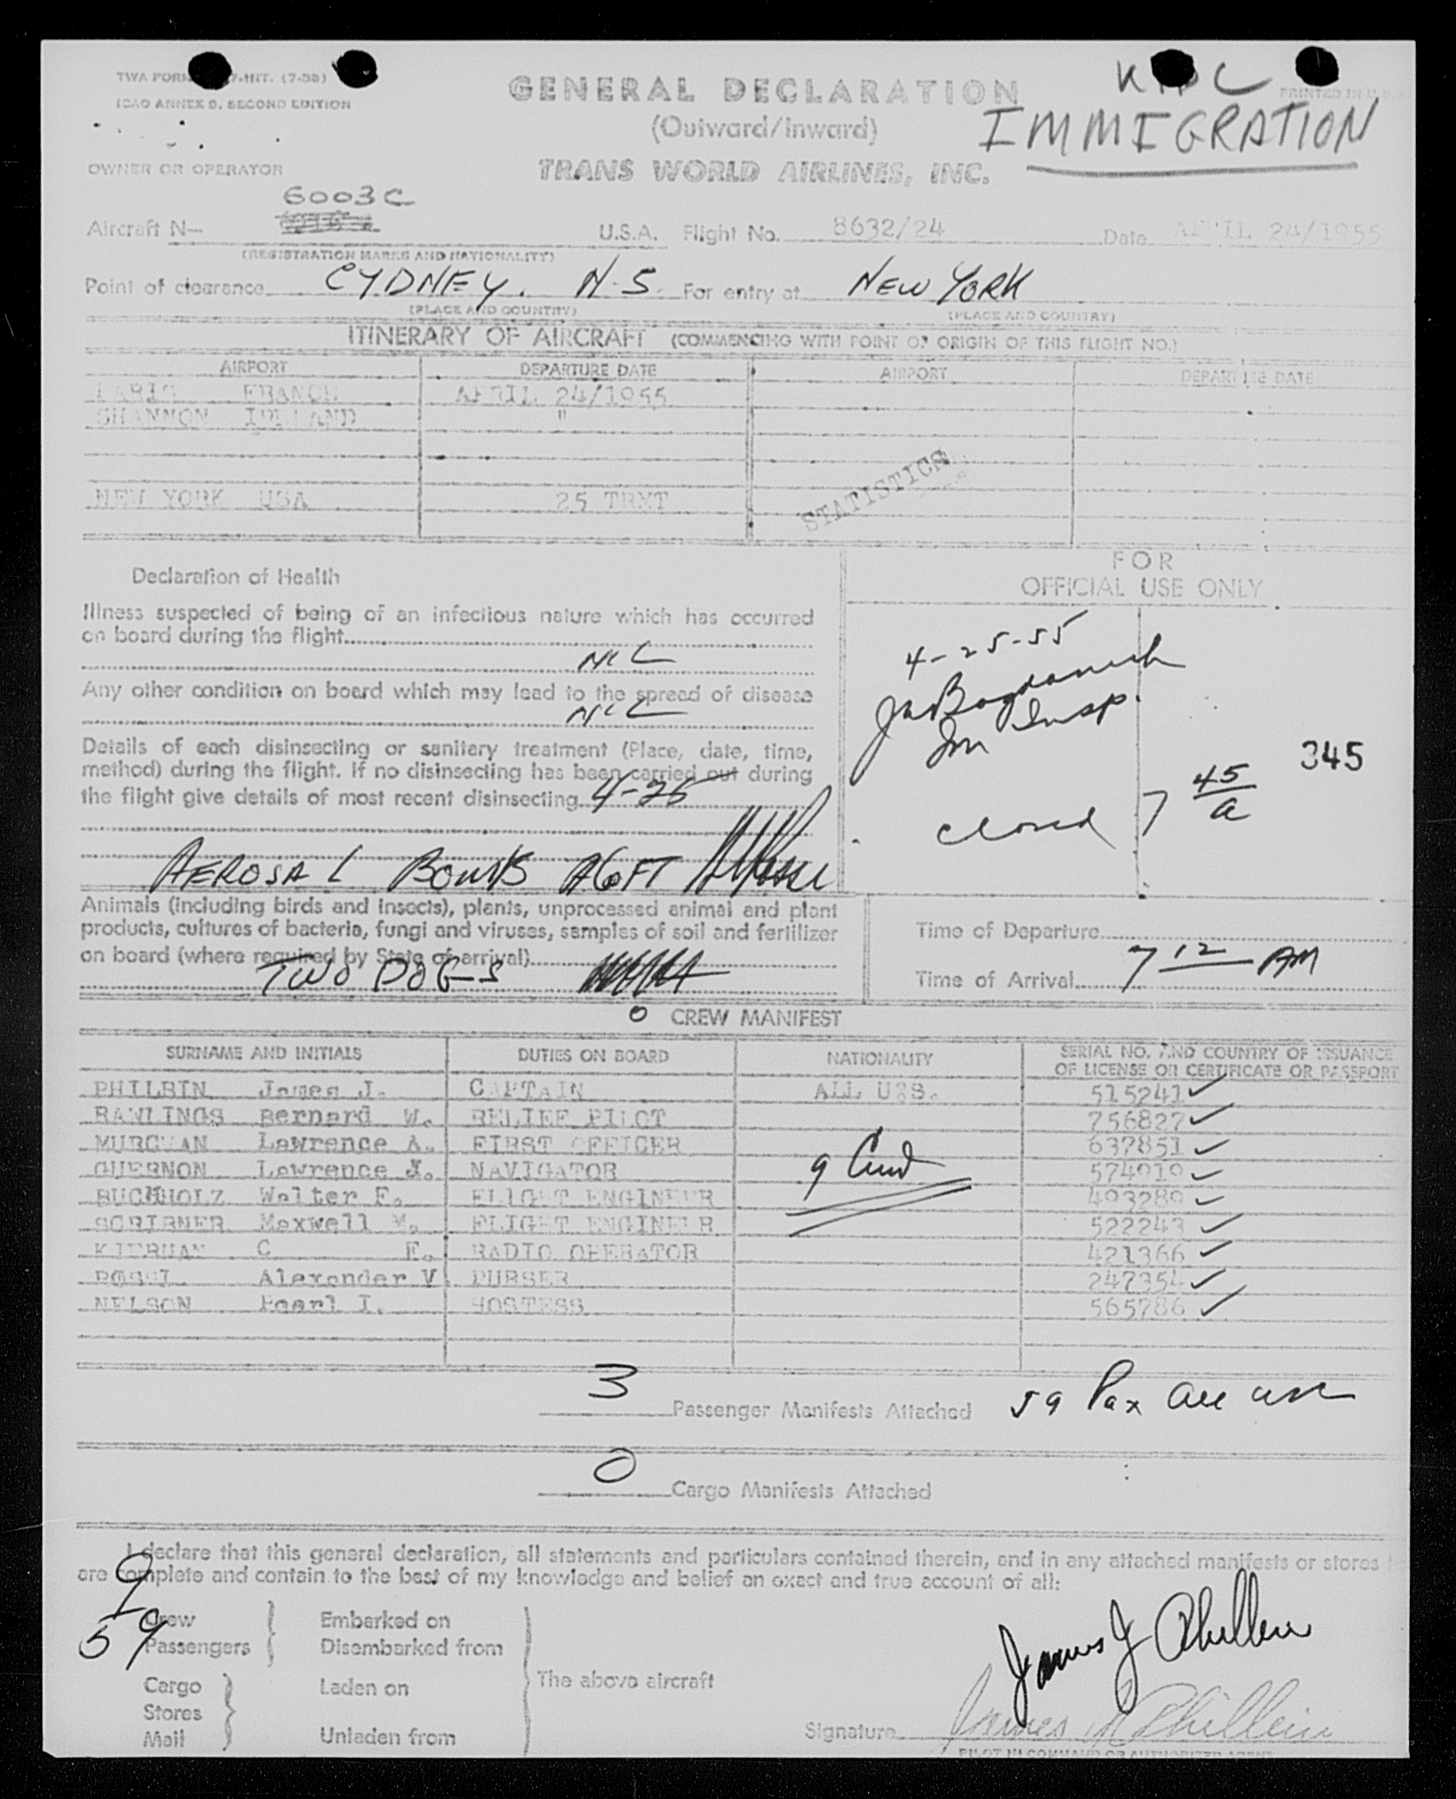 TWA FORM 7-INT. (7-55)
ICAO ANNEX 9, SECOND EDITION
GENERAL DECLARATION
(Outward/Inward)
TRANS WORLD AIRLINES, INC.
IMMIGRATION
PRINTED IN U.S.A.
OWNER OR OPERATOR
6003C
Aircraft N— U.S.A. Flight No. 8632/24 Date APRIL 24/1955
(REGISTRATION MARKS AND NATIONALITY)
Point of clearance CYDNEY. N.S. For entry at NEW YORK
(PLACE AND COUNTRY) (PLACE AND COUNTRY)
ITINERARY OF AIRCRAFT (COMMENCING WITH POINT OF ORIGIN OF THIS FLIGHT NO.)
AIRPORT DEPARTURE DATE AIRPORT DEPARTURE DATE
PARIS FRANCE APRIL 24/1955
SHANNON IRELAND "
STATISTICS
NEW YORK USA 25 TRMT
Declaration of Health
Illness suspected of being of an infectious nature which has occurred
on board during the flight
NIL
Any other condition on board which may lead to the spread of disease
NIL
Details of each disinsecting or sanitary treatment (Place, date, time,
method) during the flight. If no disinsecting has been carried out during
the flight give details of most recent disinsecting 4-25
AEROSAL BOMBS
FOR
OFFICIAL USE ONLY
4-25-55
Im Insp.
345
closed 7 45/a
Animals (including birds and insects), plants, unprocessed animal and plant
products, cultures of bacteria, fungi and viruses, samples of soil and fertilizer
on board (where required by State of arrival)
TWO DOGS
Time of Departure
Time of Arrival 7 12 AM
0 CREW MANIFEST
SURNAME AND INITIALS DUTIES ON BOARD NATIONALITY SERIAL NO. AND COUNTRY OF ISSUANCE
OF LICENSE OR CERTIFICATE OR PASSPORT
PHILBIN James J. CAPTAIN ALL U.S. 515241
RAWLINGS Bernard W. RELIEF PILOT 756827
Lawrence A. FIRST OFFICER 637851
GUERNON Lawrence J. NAVIGATOR 574919
BUCHHOLZ Walter F. FLIGHT ENGINEER 493289
SCRIBNER Maxwell M. FLIGHT ENGINEER 522243
C E. RADIO OPERATOR 421366
Alexander V PURSER 247354
NELSON Pearl I. HOSTESS 565786
3 Passenger Manifests Attached 59 Pax all
0 Cargo Manifests Attached
I declare that this general declaration, all statements and particulars contained therein, and in any attached manifests or stores
are complete and contain to the best of my knowledge and belief an exact and true account of all:
9 Crew Embarked on
59 Passengers Disembarked from
The above aircraft
Cargo Laden on
Stores
Mail Unladen from
Signature
PILOT IN COMMAND OR AUTHORIZED AGENT